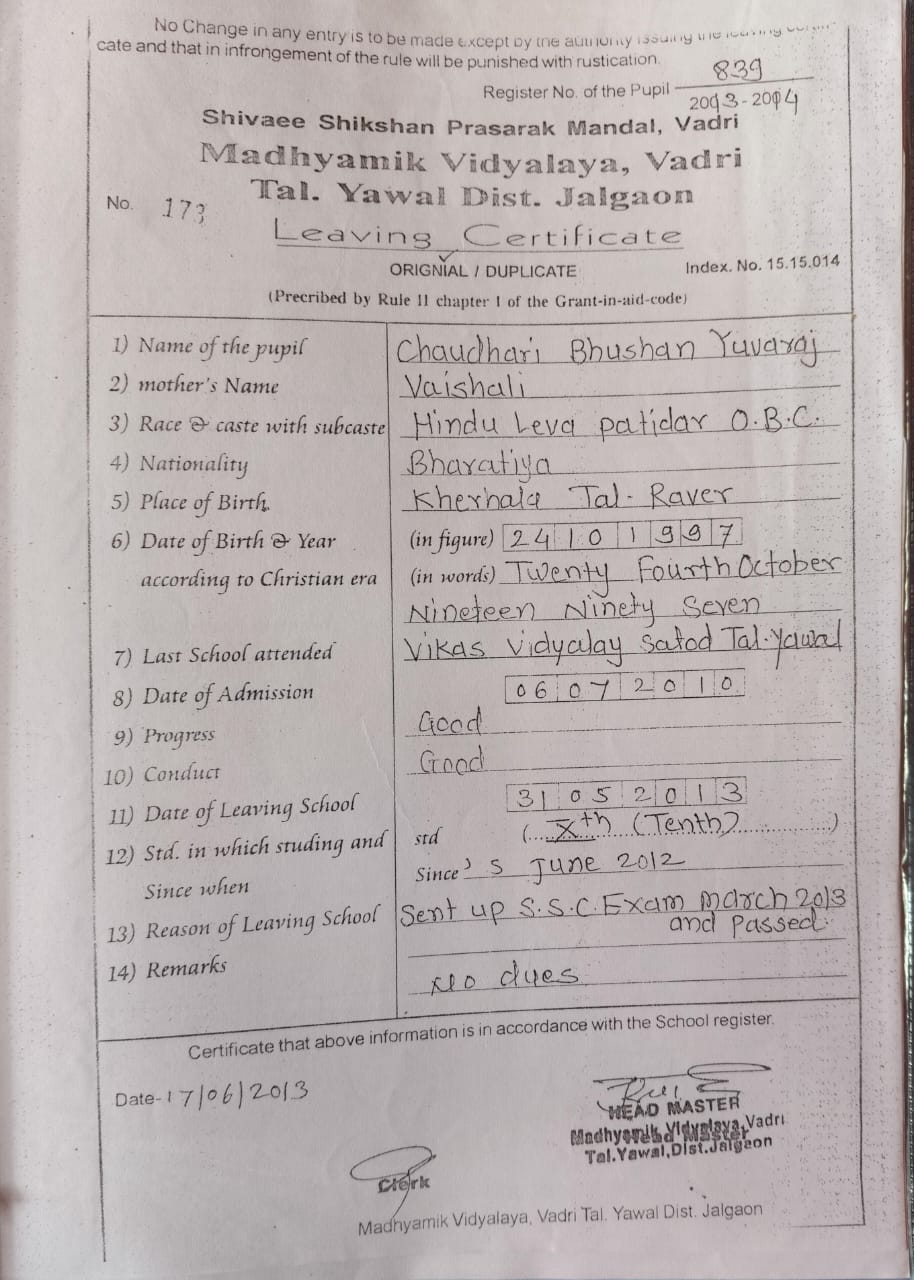 No Change in any entry is to be made except by the authority issuing the leaving certifi-
cate and that in infrongement of the rule will be punished with rustication.
Register No. of the Pupil 839
2013-2014
Shivaee Shikshan Prasarak Mandal, Vadri
Madhyamik Vidyalaya, Vadri
No. 173 Tal. Yawal Dist. Jalgaon
Leaving Certificate
ORIGNIAL / DUPLICATE Index. No. 15.15.014
(Precribed by Rule II chapter I of the Grant-in-aid-code)
1) Name of the pupil Chaudhari Bhushan Yuvaraj
2) mother's Name Vaishali
3) Race & caste with subcaste Hindu Leva patidar O.B.C.
4) Nationality Bharatiya
5) Place of Birth. Tal- Raver
6) Date of Birth & Year (in figure) 24 10 1997
according to Christian era (in words) Twenty Fourth October
Nineteen Ninety Seven
7) Last School attended Vikas Vidyalay Satod Tal-Yawal
8) Date of Admission 06 07 2010
9) Progress Good
10) Conduct Good
11) Date of Leaving School 31 05 2013
12) Std. in which studing and std (Xth (Tenth))
Since when Since's June 2012
13) Reason of Leaving School Sent up S.S.C. Exam March 2013
and Passed.
14) Remarks No dues
Certificate that above information is in accordance with the School register.
Date- 17/06/2013
HEAD MASTER
Madhyamik Vidyalaya, Vadri
Tal.Yawal,Dist.Jalgaon
Clerk
Madhyamik Vidyalaya, Vadri Tal. Yawal Dist. Jalgaon